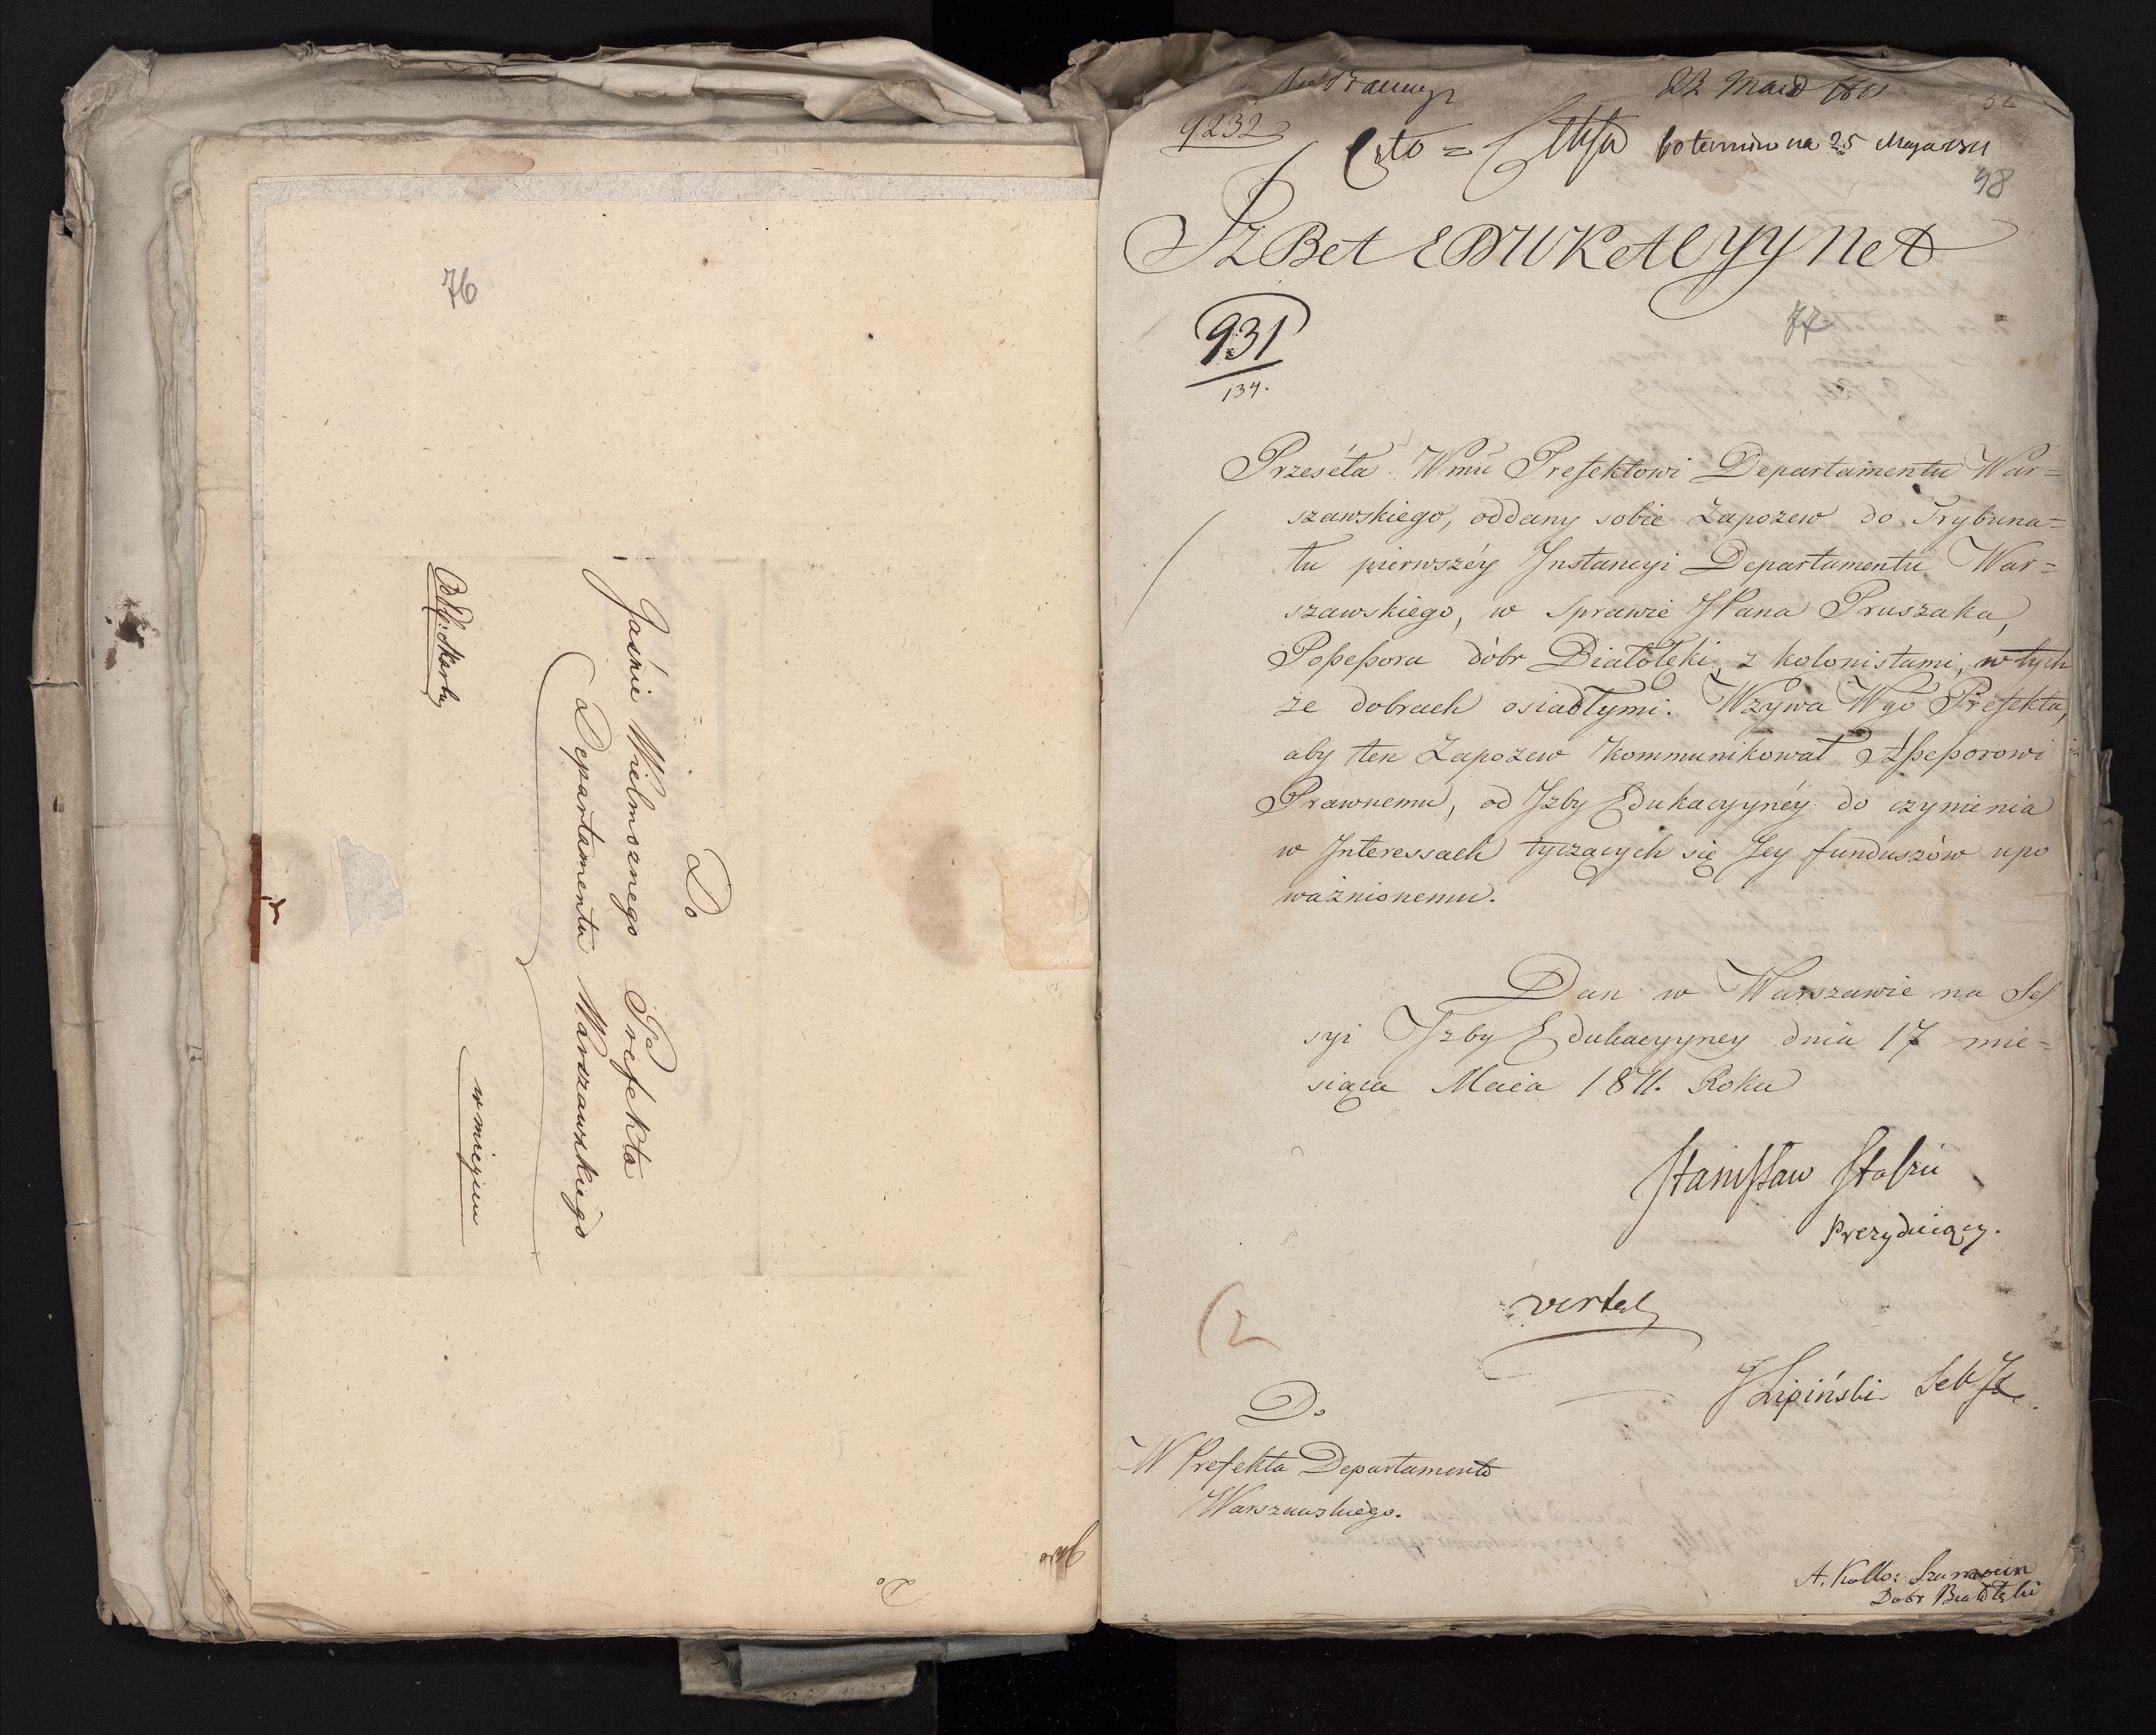 76
Do
Jaśnie Wielmożnego Prefekta
Departamentu Warszawskiego
w mieyscu
Do
22 Maia 1811
52
9232
Cito = Citissime bo termin na 25 Maja 1811
98
JzBA EDUKACyyNA
77
931
134.
Przeséła Wmu Prefektowi Departamentu War=
szawskiego, oddany sobie Zapozew do Trybuna=
łu pierwszéy Jnstancyi Departamentu War=
szawskiego, w sprawie JPana Pruszaka,
Possessora dóbr Białołęki, z kolonistami, w tych
że dobrach osiadłymi. Wzywa Wgo Prefekta,
aby ten Zapozew kommunikował Assessorowi
Prawnemu, od Jzby Edukacyynéy do czynienia
w Jnteressach tyczących się Jey funduszów upo
ważnionemu.
Dan w Warszawie na Ses
syi Jzby Edukacyyney dnia 17 mie=
siąca Maia 1811. Roku
Stanisław Staszic
Prezyduiący.
verte
(2
JLipiński Sek Jz.
Do
W Prefekta Departamentu
Warszawskiego.
Dobr Białołęki